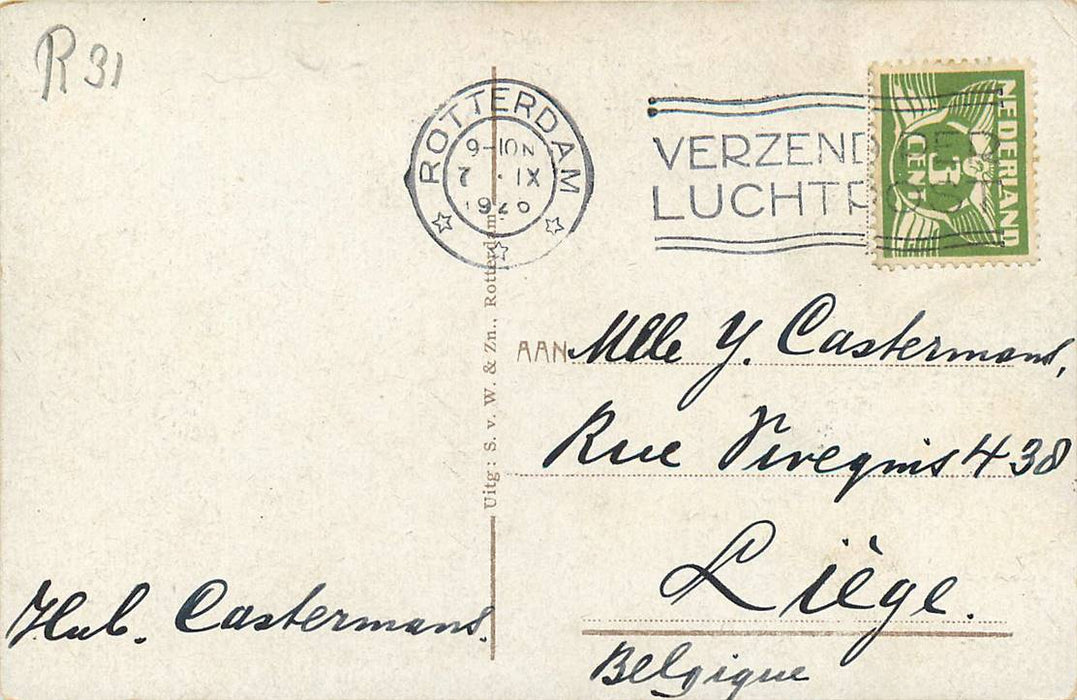 R 31
ROTTERDAM
9-10 N
7 . IX
1926
VERZEND PER
LUCHTPOST
NEDERLAND
3
CENT
Uitg: S. v. W. & Zn., Rotterdam
AAN Mlle Y. Castermans,
Rue Vivegnis 438
Liège.
Belgique
Hub. Castermans.